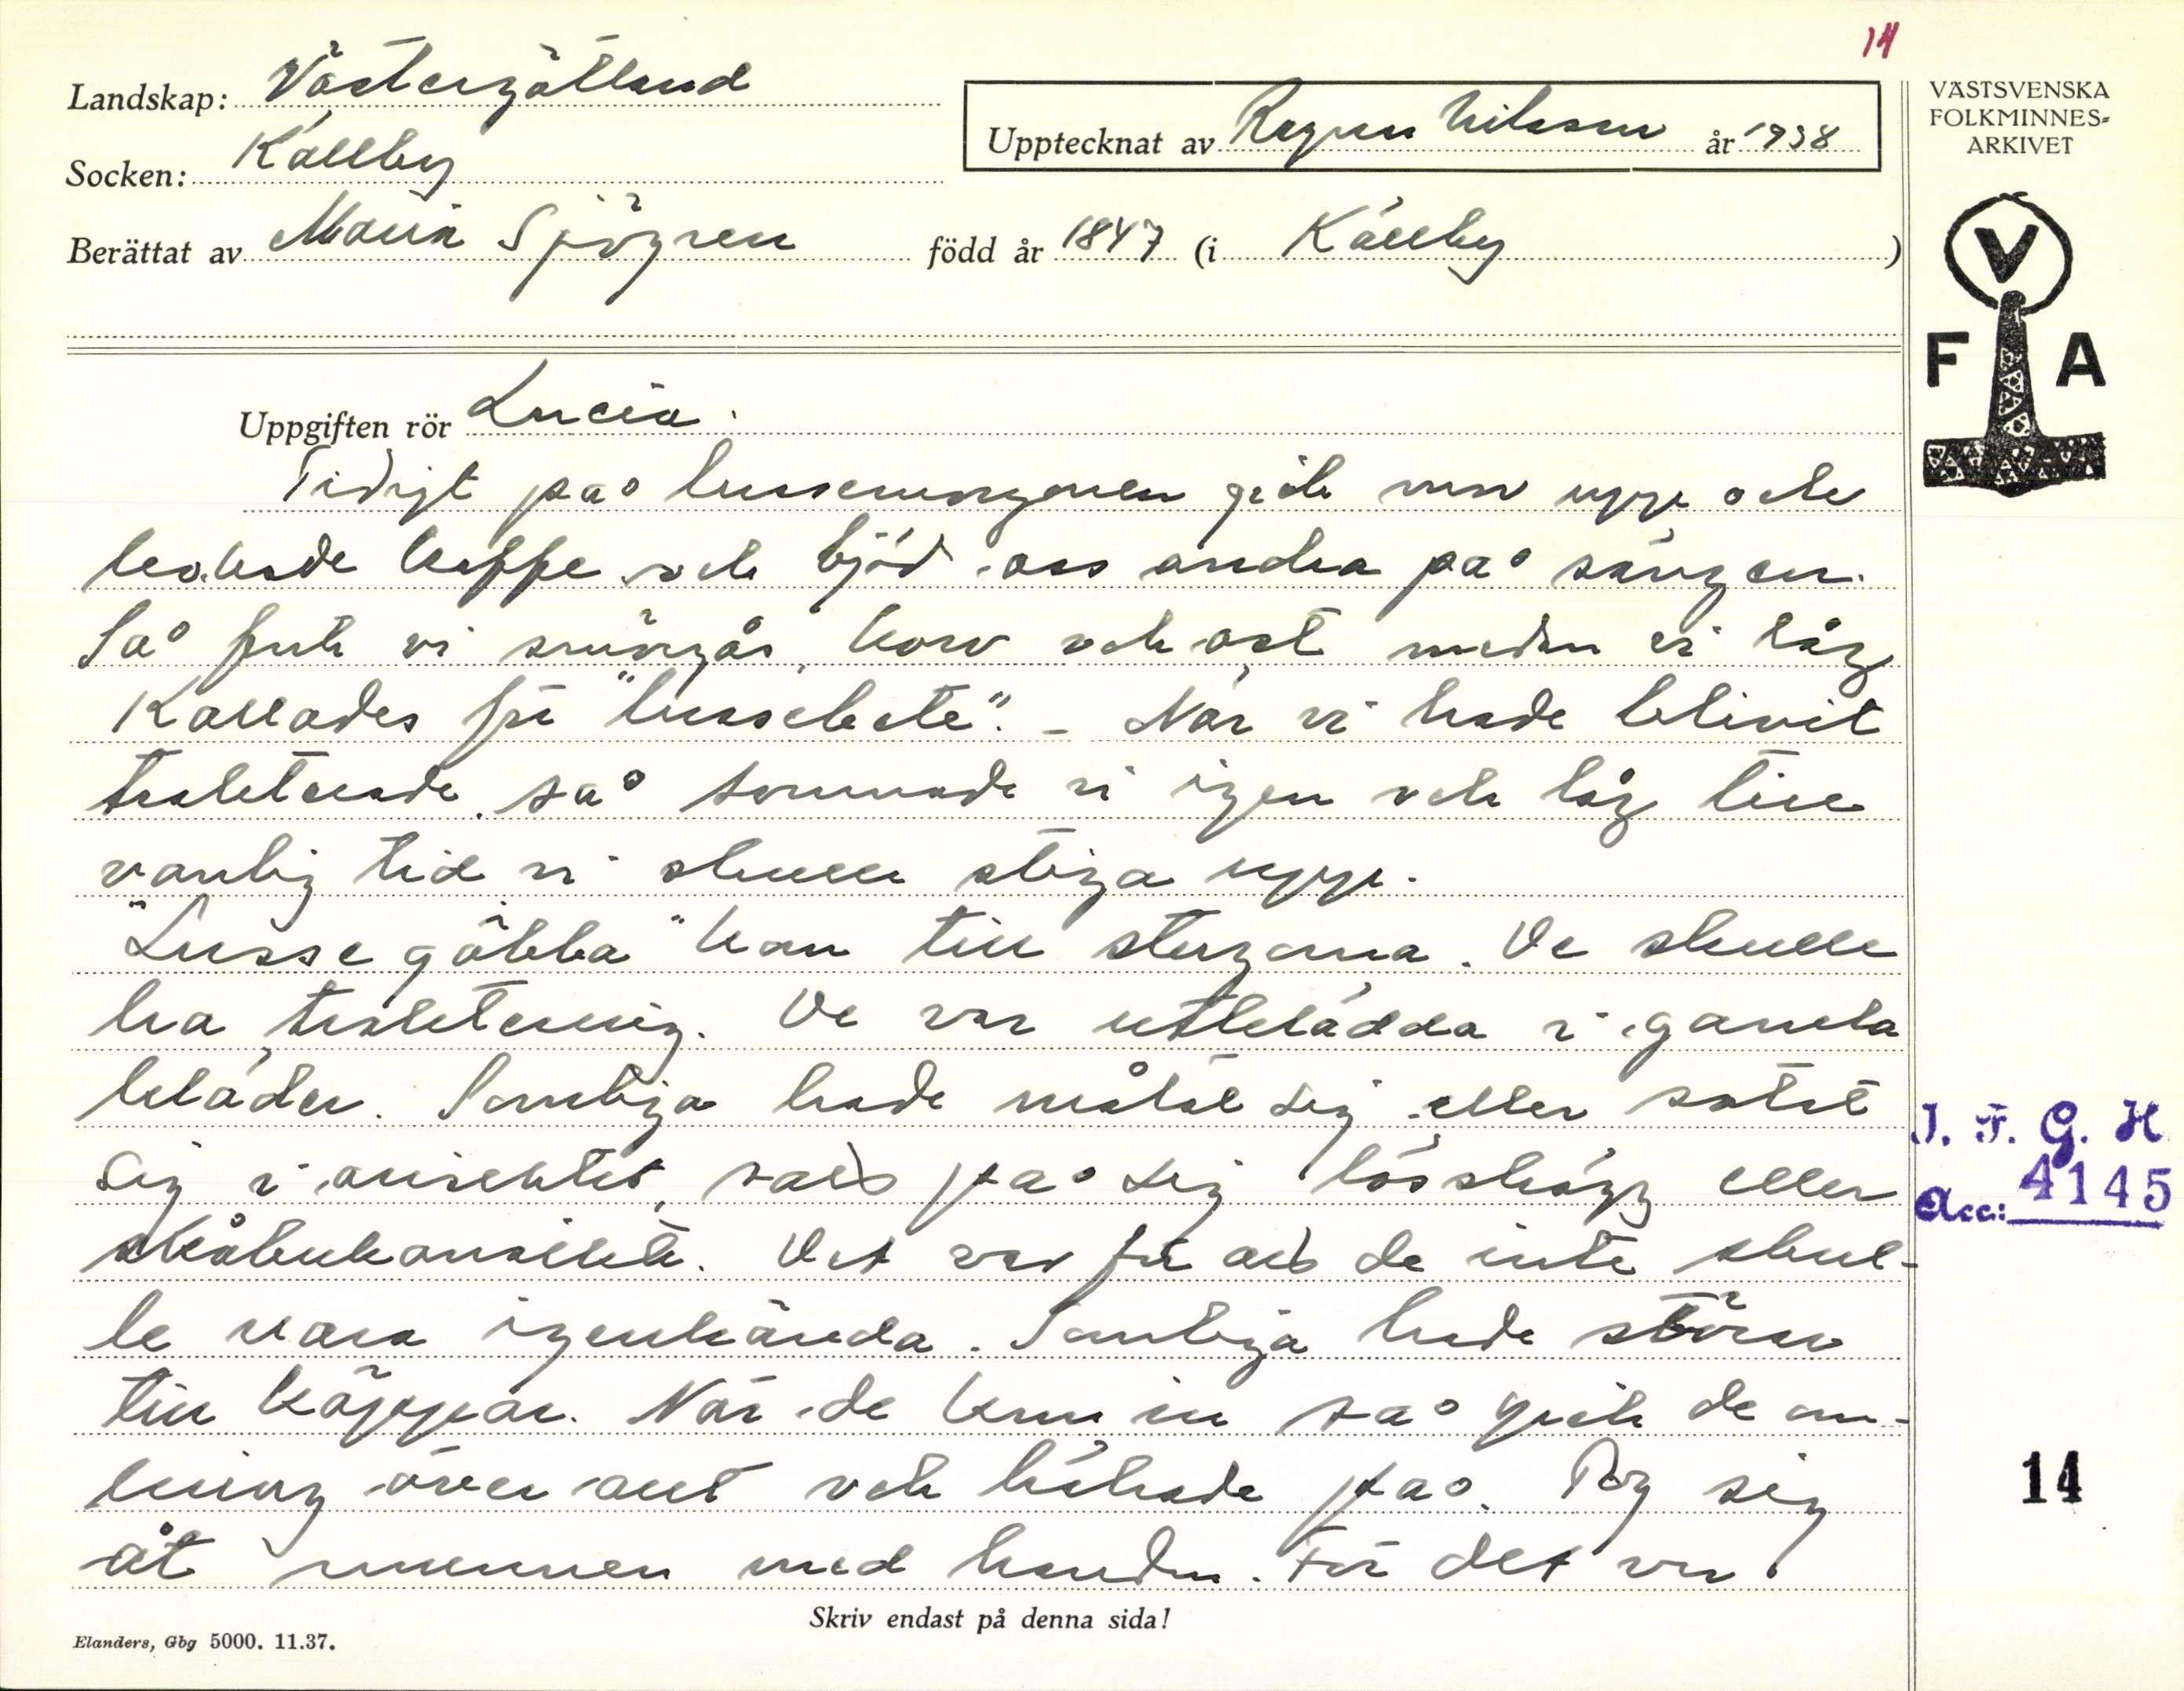 14
Landskap: Västergötland
Upptecknat av Ragnar Nilsson år 1938
Socken: Källby
Berättat av Maria Sjögren född år 1847 (i Källby)
VÄSTSVENSKA
FOLKMINNES-
ARKIVET
V
F A
Uppgiften rör Lucia.
Tidigt på lussemorgonen gick mor upp och
kokade kaffe och bjöd oss andra på sängen.
Så fick vi smörgås, korv och ost medan vi låg
Kallades för "lussebete". - När vi hade blivit
trakterade, så somnade vi igen och låg till
vanlig tid vi skulle stiga upp.
"Lusse göbba" kom till stugorna. De skulle
ha traktering. De var utklädda i gamla
kläder. Somliga hade målat sig eller sotat
sig i ansiktet, satt på sig lösskägg eller
skåbukansikte. Det var för att de inte skul-
le vara igenkända. Somliga hade störar
till käppar. När de kom in så gick de om-
kring över allt och hälsade på. Tog sig
åt munnen med handen. För det var
J. F. G. H
Acc: 4145
14
Skriv endast på denna sida!
Elanders, Gbg 5000. 11.37.